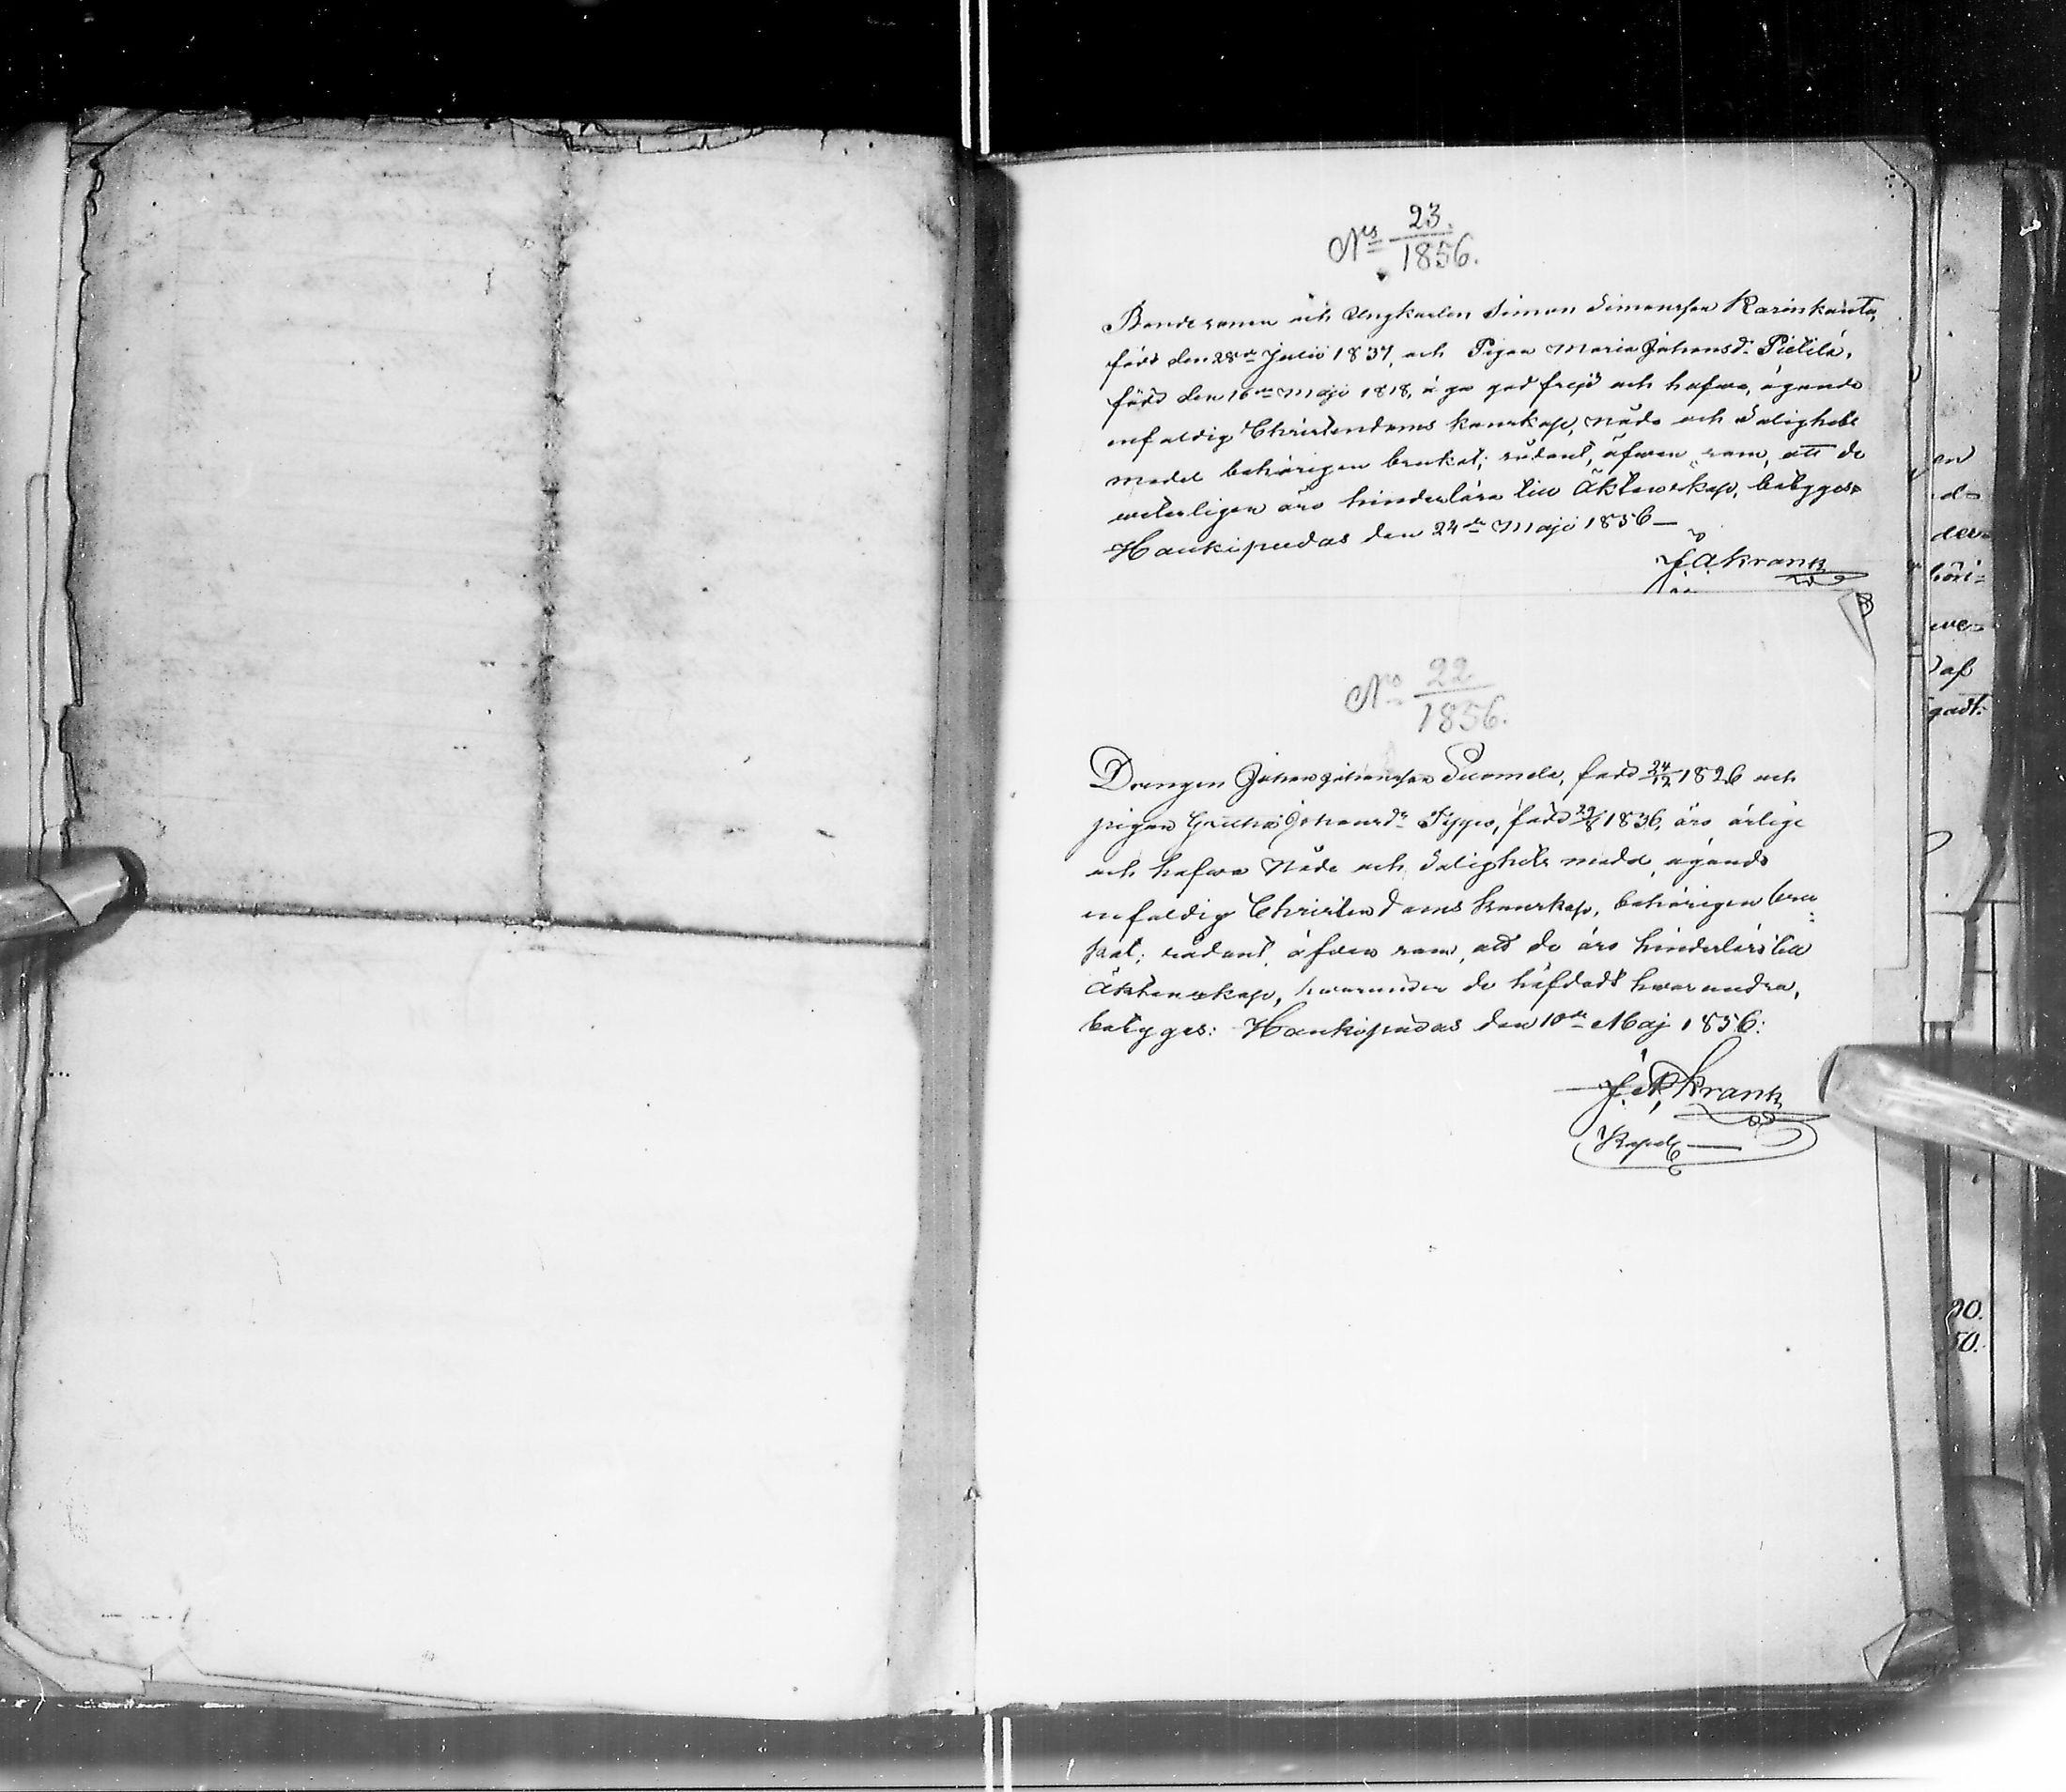 No 23/1856.
Bondesonen och Ungkarlen Simon Simonsson Karinkanta,
född den 28de Julii 1837, och Pigan Maria Johansdr Pietilä,
född den 16de Maji 1818, äga god frejd och hafwa, ägande
enfaldig Christendoms kunskap, Nåde och Salighets
medel behörigen brukat; sådant, äfwen som, att de
weterligen äro hinderlöse till Äktenskap, betyges.
Haukipudas den 24de Maji 1856 —
J. A. Krank
No 22/1856.
Drengen Johan Johansson Suomela, född 24/12 1826 och
pigan Greetha Johansdr Sippo, född 29/8 1836, äro ärlige
och hafwa Nåde och Salighets medel, ägande
enfaldig Christendoms kunskap, behörigen bru-
kat; sådant, äfwen som, att de äro hinderlöse till
Äktenskap, hwarunder de häfdadt hwarandra,
betyges: Haukipudas den 10de Maj 1856:
J. A. Krank
Kapel.
en
d=
der=
höri=
we=
af
gadt.
00.
50.